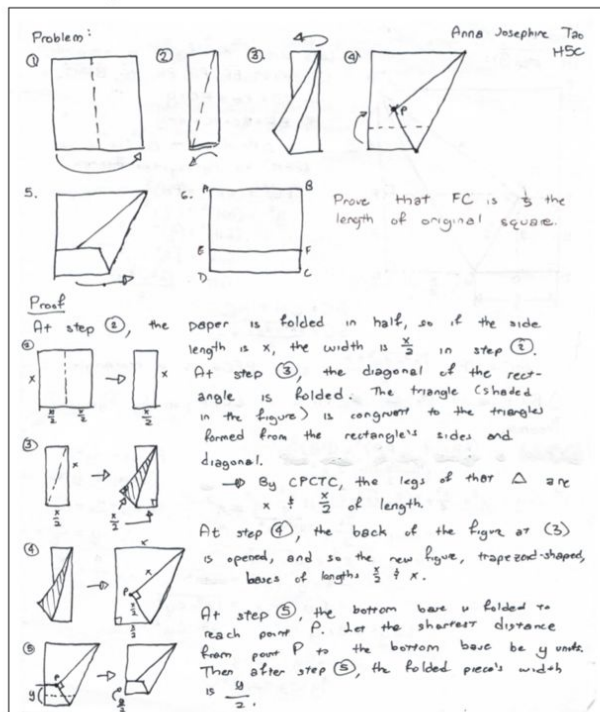 Anna Josephine Tao
H5C
Problem:
① ② ③ ④
P
5. 6. A B
E F
D C
Prove that FC is 1/5 the
length of original square.
Proof
At step ②, the paper is folded in half, so if the side
length is x, the width is x/2 in step ②.
② x x
x/2 x/2 x/2
At step ③, the diagonal of the rect-
angle is folded. The triangle (shaded
in the figure) is congruent to the triangles
formed from the rectangle's sides and
diagonal.
③ x
x/2 x/2
→ By CPCTC, the legs of that △ are
x & x/2 of length.
At step ④, the back of the figure at (3)
is opened, and so the new figure, trapezoid-shaped,
bases of lengths x/2 & x.
④ x
x
P
x/2
x/2
At step ⑤, the bottom base is folded to
reach point P. Let the shortest distance
from point P to the bottom base be y units.
Then after step ⑤, the folded piece's width
is y/2.
⑤ P
y y/2